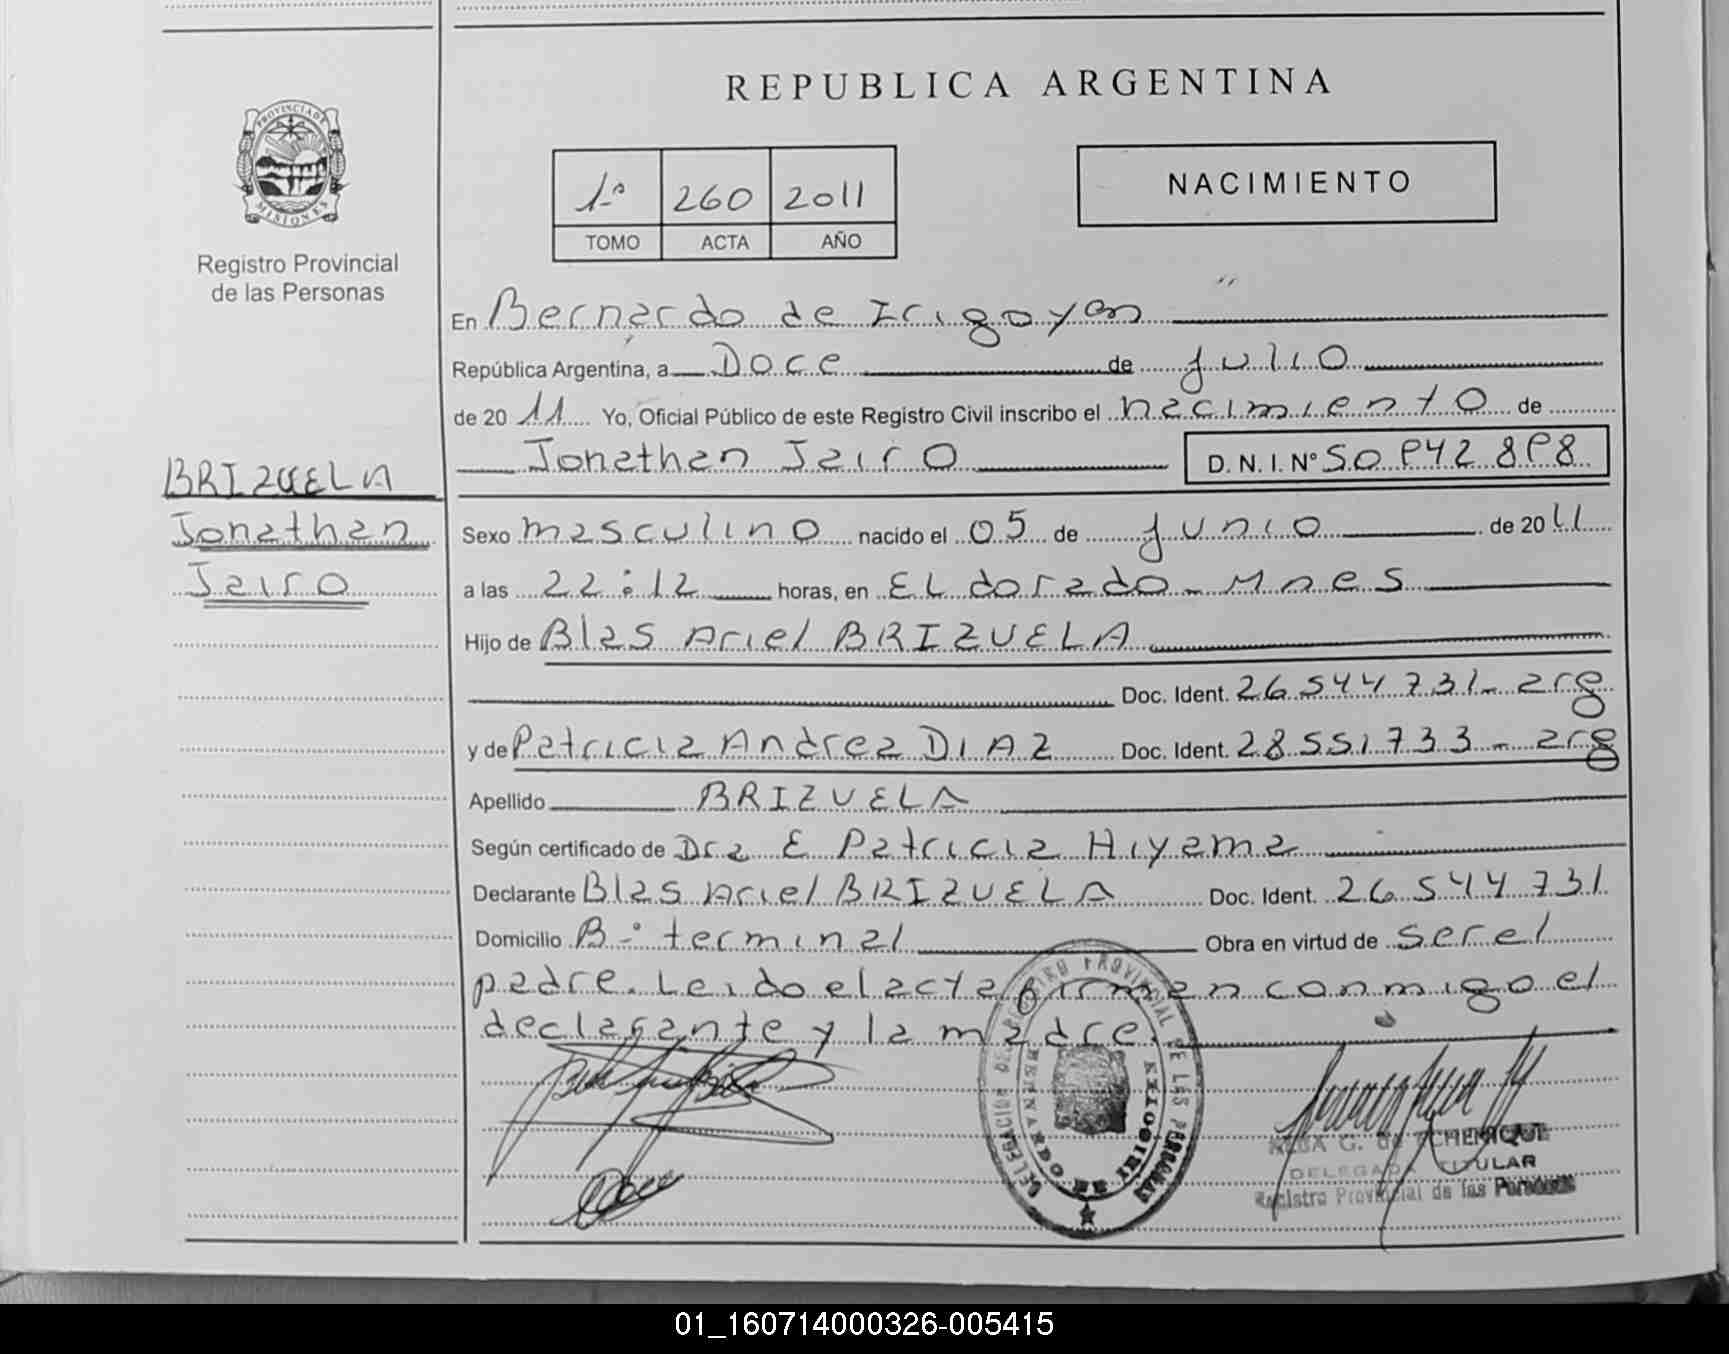 REPUBLICA ARGENTINA
PROVINCIA DE MISIONES
Registro Provincial
de las Personas
1º 260 2011
TOMO ACTA AÑO
NACIMIENTO
En Bernardo de Irigoyen
República Argentina, a Doce de julio
de 2011 Yo, Oficial Público de este Registro Civil inscribo el nacimiento de
Jonathan Jairo D. N. I. Nº
BRIZUELA
Jonathan
Jairo
Sexo masculino nacido el 05 de junio de 2011
a las 22:12 horas, en ELdorado - Mnes
Hijo de Blas Ariel BRIZUELA
Doc. Ident. 26544731- arg
y de Patricia Andrea DIAZ Doc. Ident. 28551733 - arg
Apellido BRIZUELA
Según certificado de Dra E Patricia Hiyama
Declarante Blas Ariel BRIZUELA Doc. Ident. 26544731
Domicilio B-º terminal Obra en virtud de ser el
padre. Leido el acta firman conmigo el
declarante y la madre.
DELEGACION REGISTRO PROVINCIAL DE LAS PERSONAS
BERNARDO DE IRIGOYEN
DELEGADA TITULAR
Registro Provincial de las Personas
01_160714000326-005415